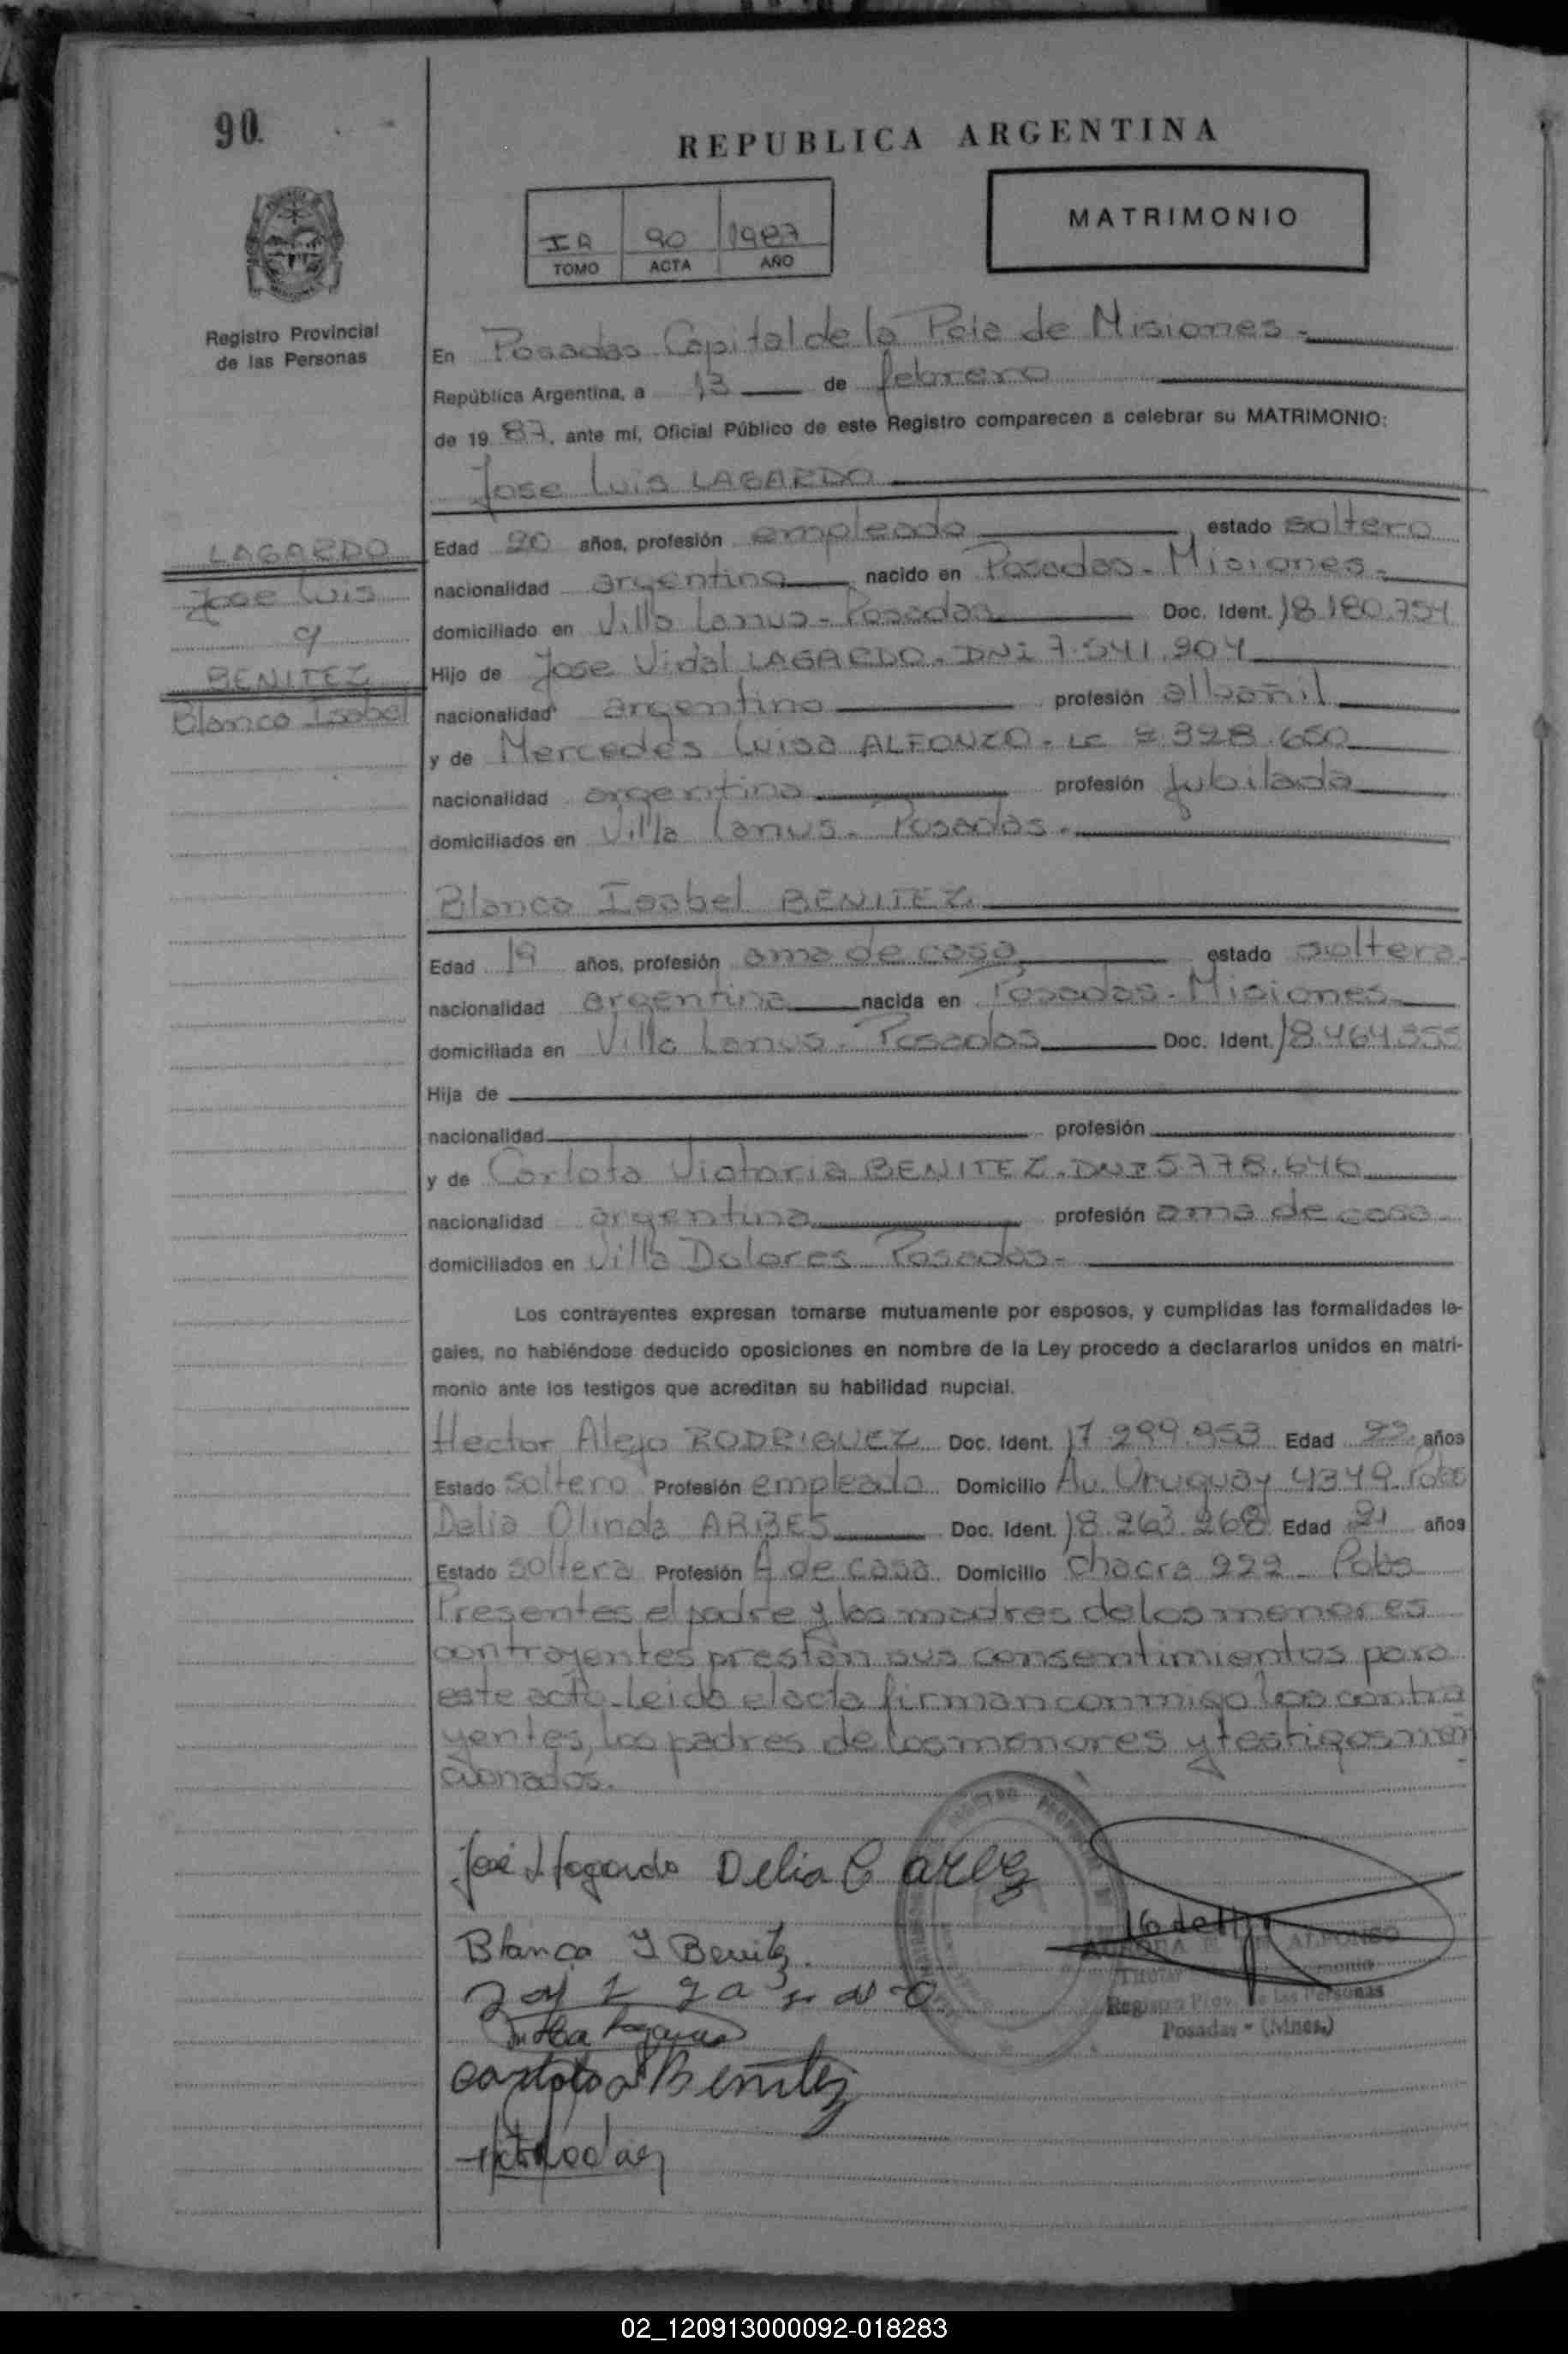 90.
REPUBLICA ARGENTINA
MATRIMONIO
IA 90 1987
TOMO ACTA AÑO
Registro Provincial
de las Personas
En Posadas Capital de la Pcia de Misiones.-
República Argentina, a 13 de febrero
de 19 87, ante mí, Oficial Público de este Registro comparecen a celebrar su MATRIMONIO:
Jose Luis LAGARDO
LAGARDO
Jose Luis
BENITEZ
Blanca Isabel
Edad 20 años, profesión empleado estado soltero
nacionalidad argentina nacido en Posadas - Misiones.-
domiciliado en Villa Lanus - Posadas Doc. Ident. 18.180.754
Hijo de Jose Vidal LAGARDO. DNI 7.541.904
nacionalidad argentino profesión albañil
y de Mercedes Luisa ALFONZO. LC 2.328.650
nacionalidad argentina profesión Jubilada
domiciliados en Villa Lanus - Posadas.-
Blanca Isabel BENITEZ
Edad 19 años, profesión ama de casa estado soltera
nacionalidad argentina nacida en Posadas - Misiones
domiciliada en Villa Lanus - Posadas Doc. Ident. 18.464.955
Hija de
nacionalidad profesión
y de Carlota Victoria BENITEZ. DNI 5.778.646
nacionalidad argentina profesión ama de casa
domiciliados en Villa Dolores - Posadas-
Los contrayentes expresan tomarse mutuamente por esposos, y cumplidas las formalidades le-
gales, no habiéndose deducido oposiciones en nombre de la Ley procedo a declararlos unidos en matri-
monio ante los testigos que acreditan su habilidad nupcial.
Hector Alejo RODRIGUEZ Doc. Ident. 17.299.953 Edad 22 años
Estado soltero Profesión empleado Domicilio Av. Uruguay 4349 Pdas
Delia Olinda ARBES Doc. Ident. 18.263.268 Edad 21 años
Estado soltera Profesión A de casa Domicilio Chacra 222 - Pdas
Presentes el padre y las madres de los menores
contrayentes prestan sus consentimientos para
este acto. Leida el acta firman conmigo los contra
yentes, los padres de los menores y testigos men
cionados.
José L Lagardo Delia
Blanca I Benitez
Carlota Benitez
ALFONSO
Titular
Registro Prov. de las Personas
Posadas - (Mnes.)
02_120913000092-018283